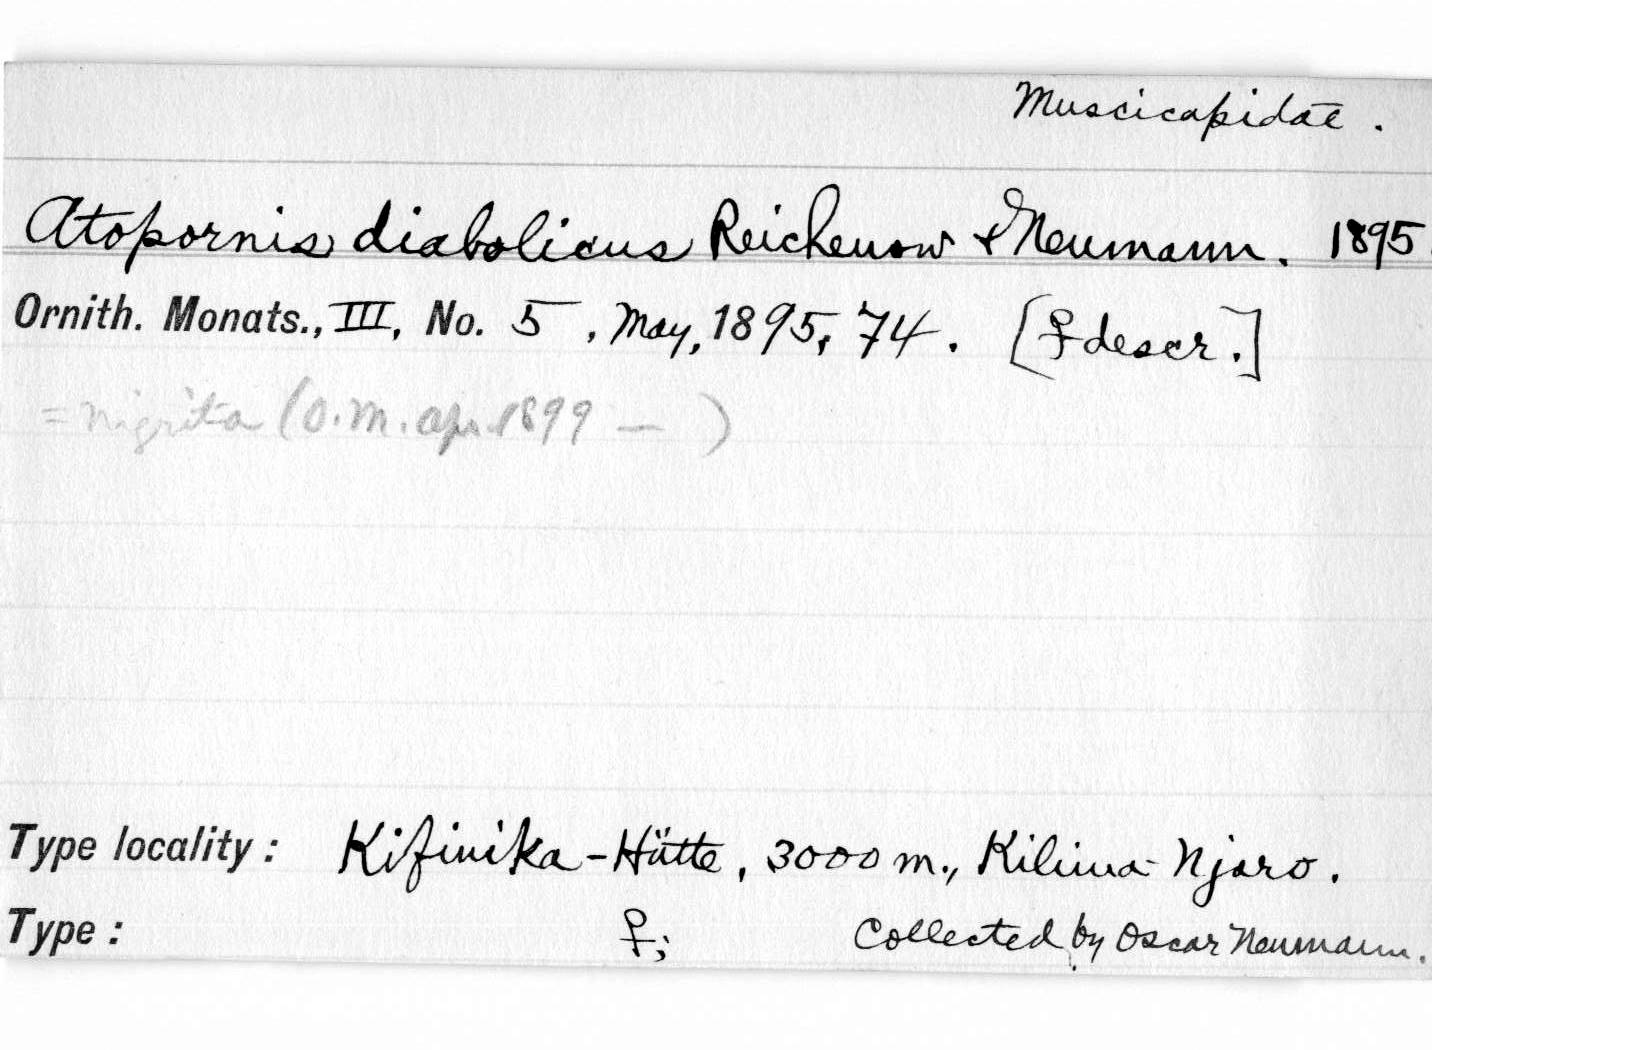 Muscicapidae.
Atopornis diabolicus Reichenow & Neumann. 1895.
Ornith. Monats., III, No. 5, May, 1895, 74. [♀ descr.]
= nigrita (O.M. Apr. 1899 — )
Type locality: Kifinika-Hütte, 3000 m., Kilima-Njaro.
Type: ♀; Collected by Oscar Neumann.